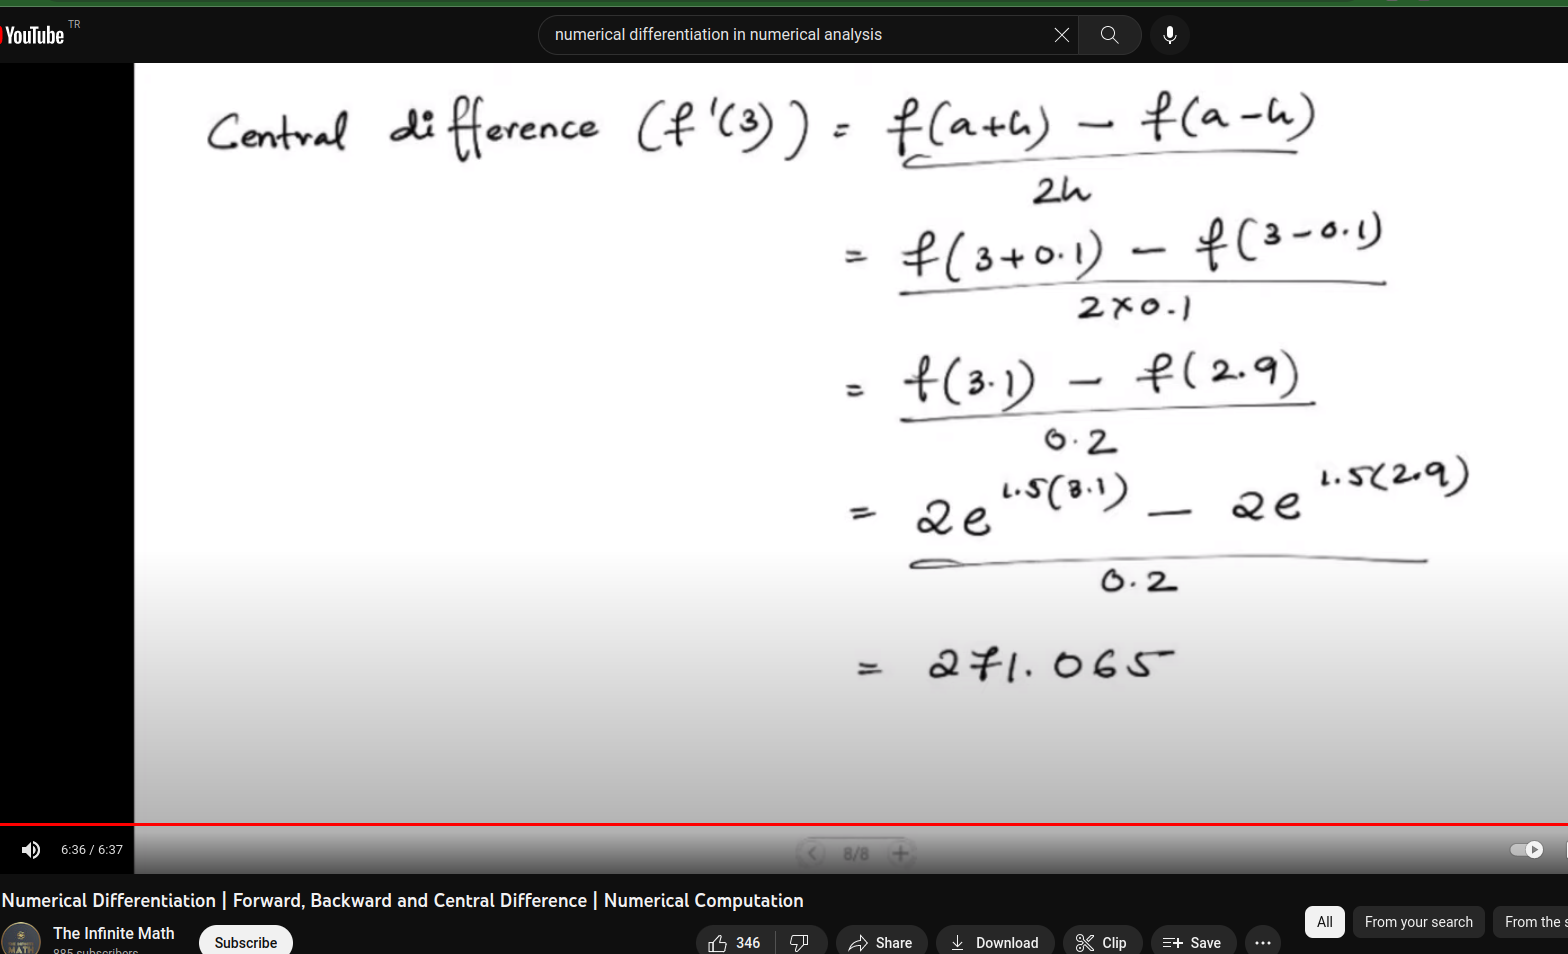 YouTube TR
numerical differentiation in numerical analysis
Central difference (f'(3)) = f(a+h) - f(a-h)
2h
= f(3+0.1) - f(3-0.1)
2×0.1
= f(3.1) - f(2.9)
0.2
= 2e^1.5(3.1) - 2e^1.5(2.9)
0.2
= 271.065
6:36 / 6:37
8/8
Numerical Differentiation | Forward, Backward and Central Difference | Numerical Computation
The Infinite Math
885 subscribers
Subscribe
346
Share
Download
Clip
Save
All
From your search
From the s